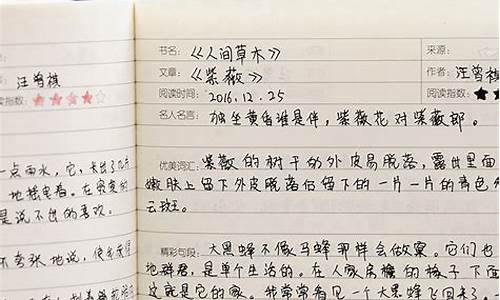 汪曾祺
阅读指数:★★★★☆
一点雨水,它,长出了几片
地摇曳着。在寂寞的
是说不出的喜欢。
不夸张地说,使我觉得
书名:《人间草木》
来源:
文章:《紫薇》
作者:汪曾祺
阅读时间:2016.12.25
阅读指数:★★
名人名言:独坐黄昏谁是伴,紫薇花对紫薇郎。
优美词汇:紫薇的树干的外皮易脱落,露出里面
嫩肤上留下外皮脱落后留下的一片一片的青色
云斑。
精彩句段:大黑蜂不像马蜂那样会做窠。它们也
地群居,是单个生活的。在人家房檐的椽子下面
这就是它的家。我常常看见一个大黑蜂飞回来了